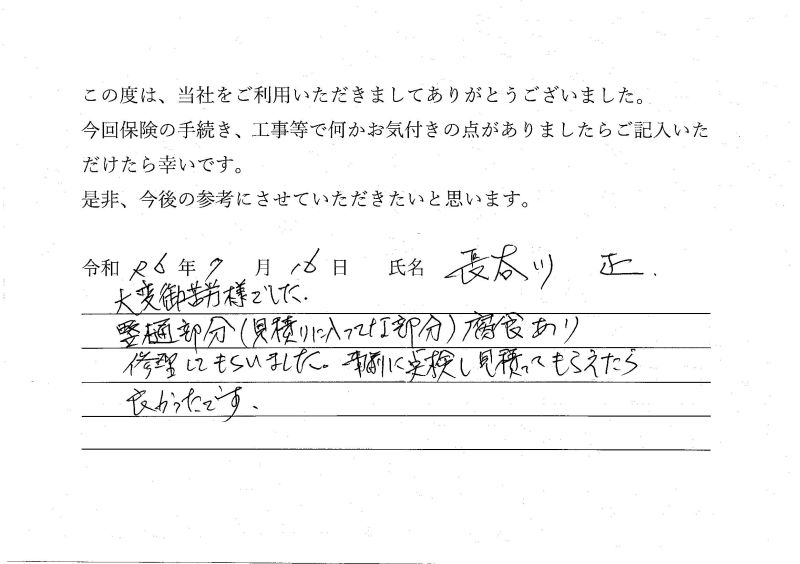 この度は、当社をご利用いただきましてありがとうございました。
今回保険の手続き、工事等で何かお気付きの点がありましたらご記入いた
だけたら幸いです。
是非、今後の参考にさせていただきたいと思います。
令和 26 年 7 月 16 日 氏名 長谷川 正
大変御苦労様でした.
竪樋部分(見積りに入ってない部分)腐食あり
修理してもらいました。事前に点検し見積ってもらえたら
良かったです.